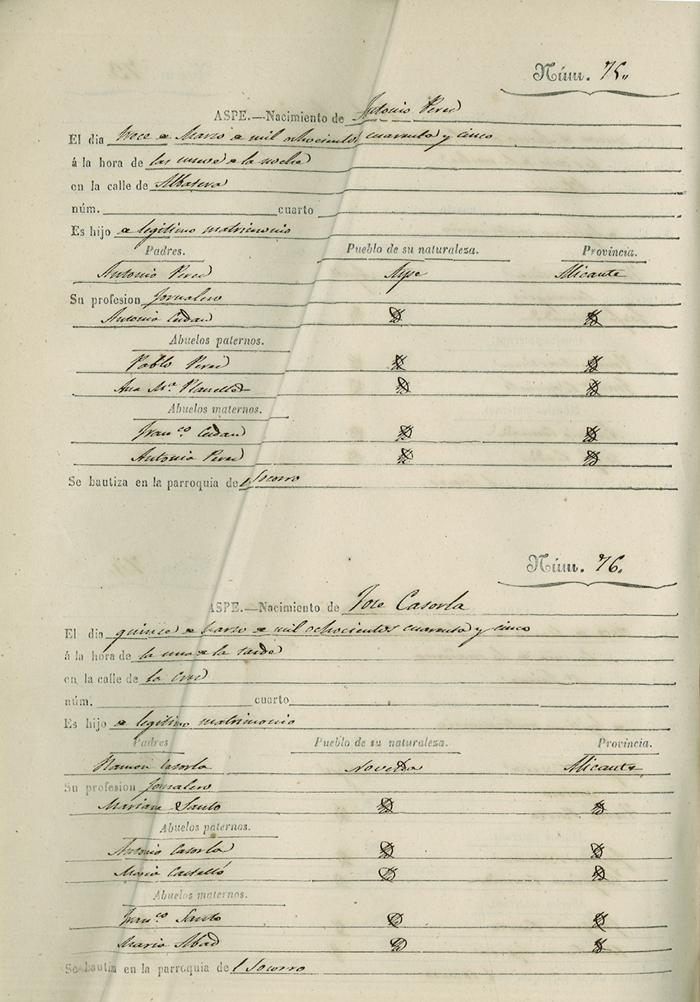 Núm. 75.
ASPE.—Nacimiento de Antonio Perez
El dia trece de Marzo de mil ochocientos cuarenta y cinco
á la hora de las nueve de la noche
en la calle de
núm. cuarto
Es hijo de legitimo matrimonio
Padres. Pueblo de su naturaleza. Provincia.
Antonio Perez Aspe Alicante
Su profesion Jornalero
Antonia
Abuelos paternos.
Pablo Perez
Ana Mª
Abuelos maternos.
Franco
Antonia Perez
Se bautiza en la parroquia de l Socorro
Núm. 76.
ASPE.—Nacimiento de Jose Casorla
El dia quince de Marzo de mil ochocientos cuarenta y cinco
á la hora de la una de la tarde
en la calle de la Cruz
núm. cuarto
Es hijo de legitimo matrimonio
Padres Pueblo de su naturaleza. Provincia.
Ramon Casorla Novelda Alicante
Su profesion Jornalero
Mariana Santo
Abuelos paternos.
Antonio Casorla
Maria Castelló
Abuelos maternos.
Franco Santo
Maria Abad
Se bautiza en la parroquia de l Socorro